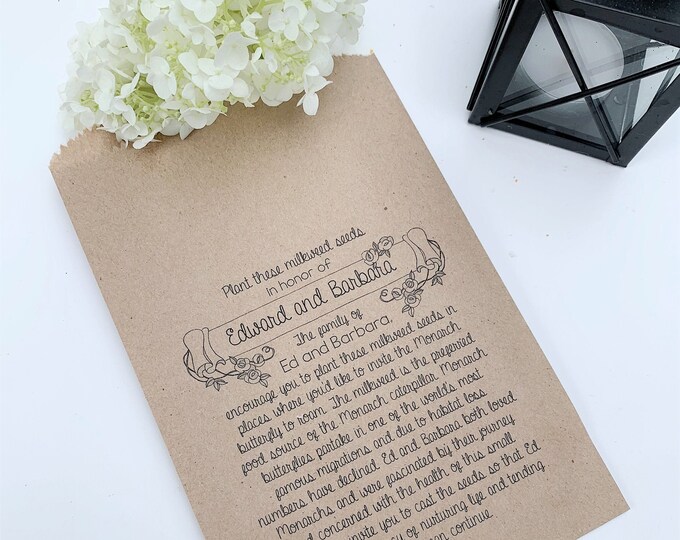 Plant these milkweed seeds
in honor of
Edward and Barbara
The family of
Ed and Barbara,
encourage you to plant these milkweed seeds in
places where you'd like to invite the Monarch
butterfly to roam. The milkweed is the preferred
food source of the Monarch caterpillar. Monarch
butterflies partake in one of the world's most
famous migrations and due to habitat loss
numbers have declined. Ed and Barbara both loved
Monarchs and were fascinated by their journey
concerned with the health of this small
invite you to cast the seeds so that Ed
of nurturing life and tending
continue.